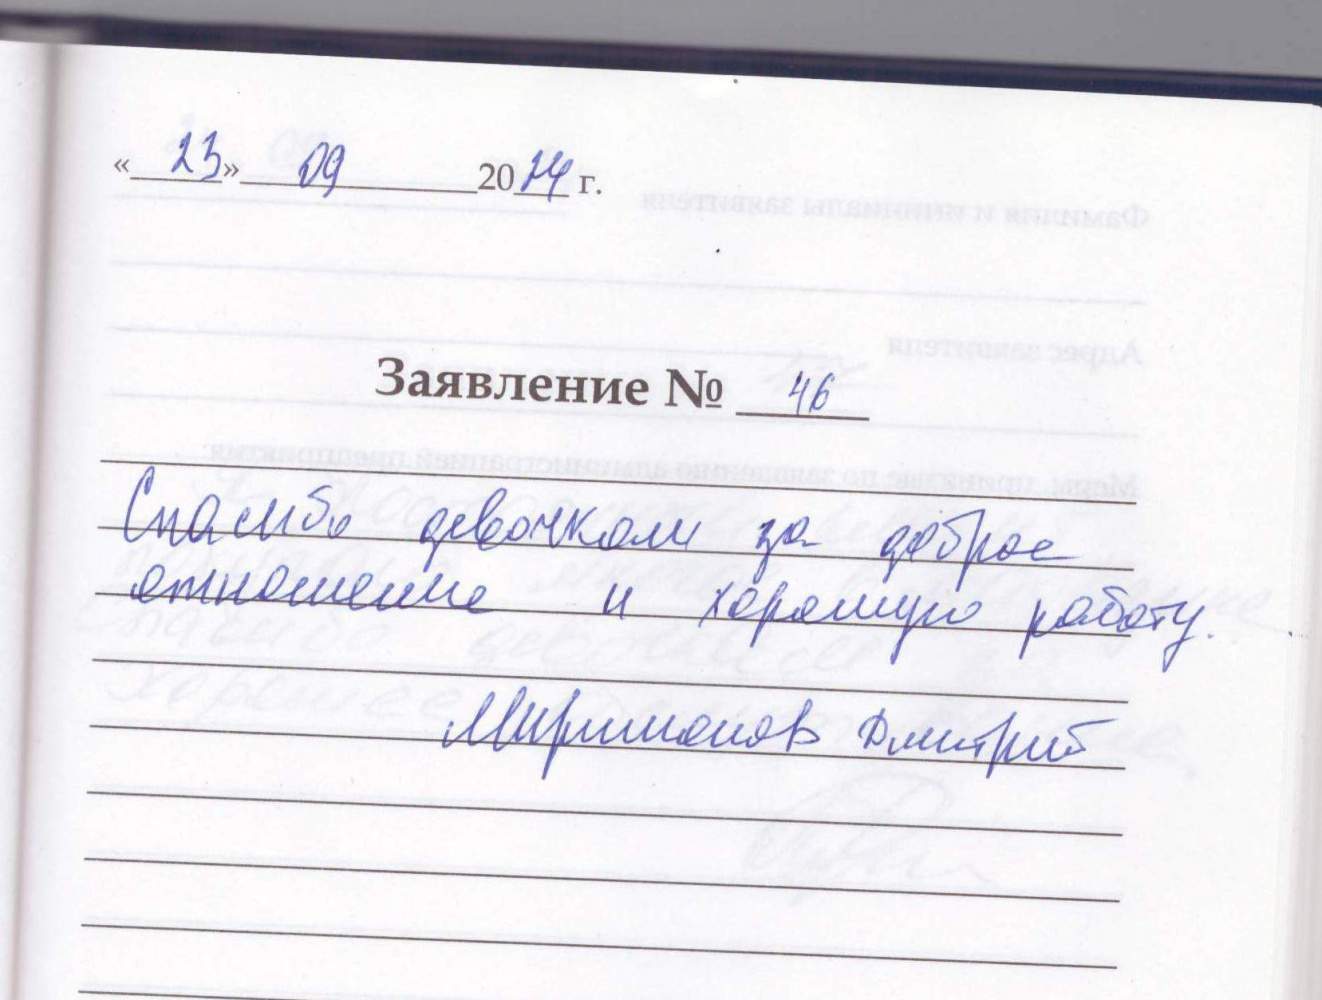 «23» 09 2014 г.
Заявление № 46
Спасибо девочкам за доброе
отношение и хорошую работу.
Миримонов Дмитрий